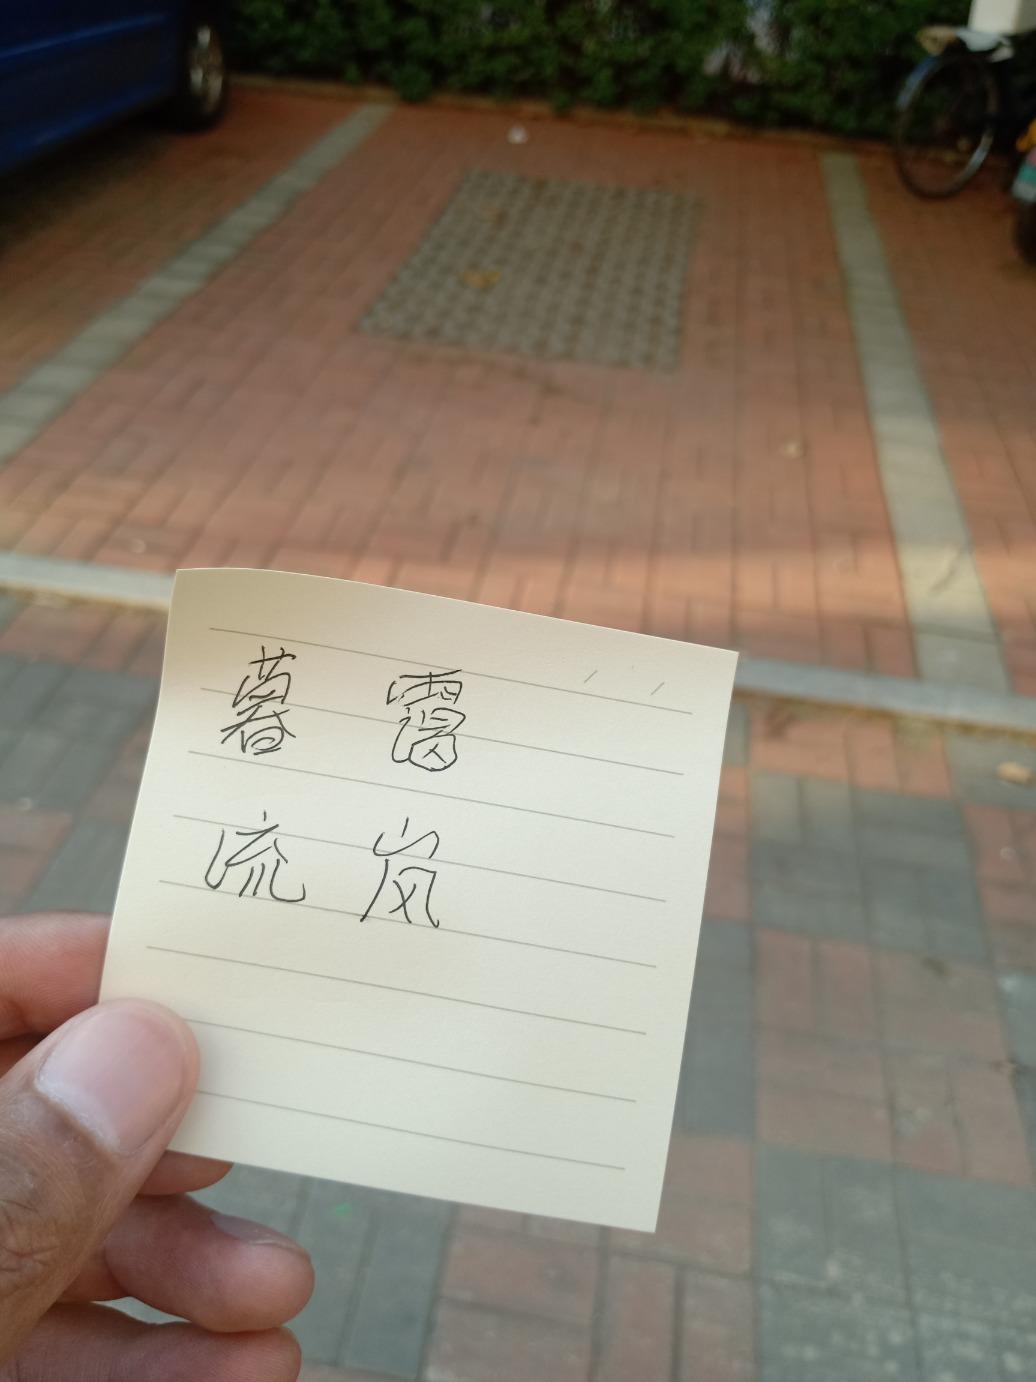 暮霭
流岚